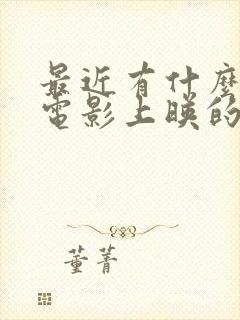 最近有什麼
電影上映的
董菁